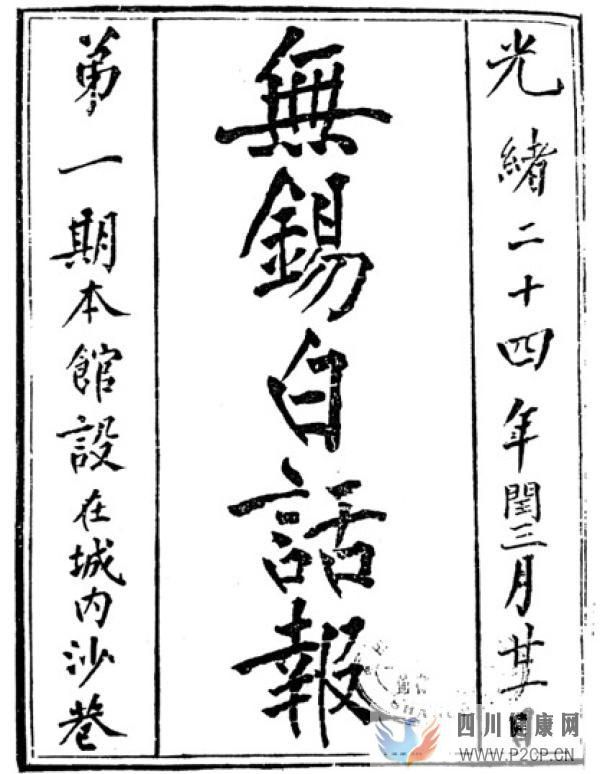 光緒二十四年閏三月廿一日
無錫白話報
第一期本館設在城內沙巷
四川健康网
WWW.P2CP.CN